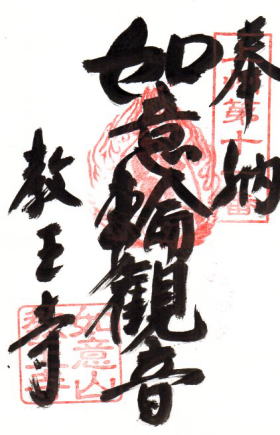 奉納
如意輪観音
教王寺
如意山